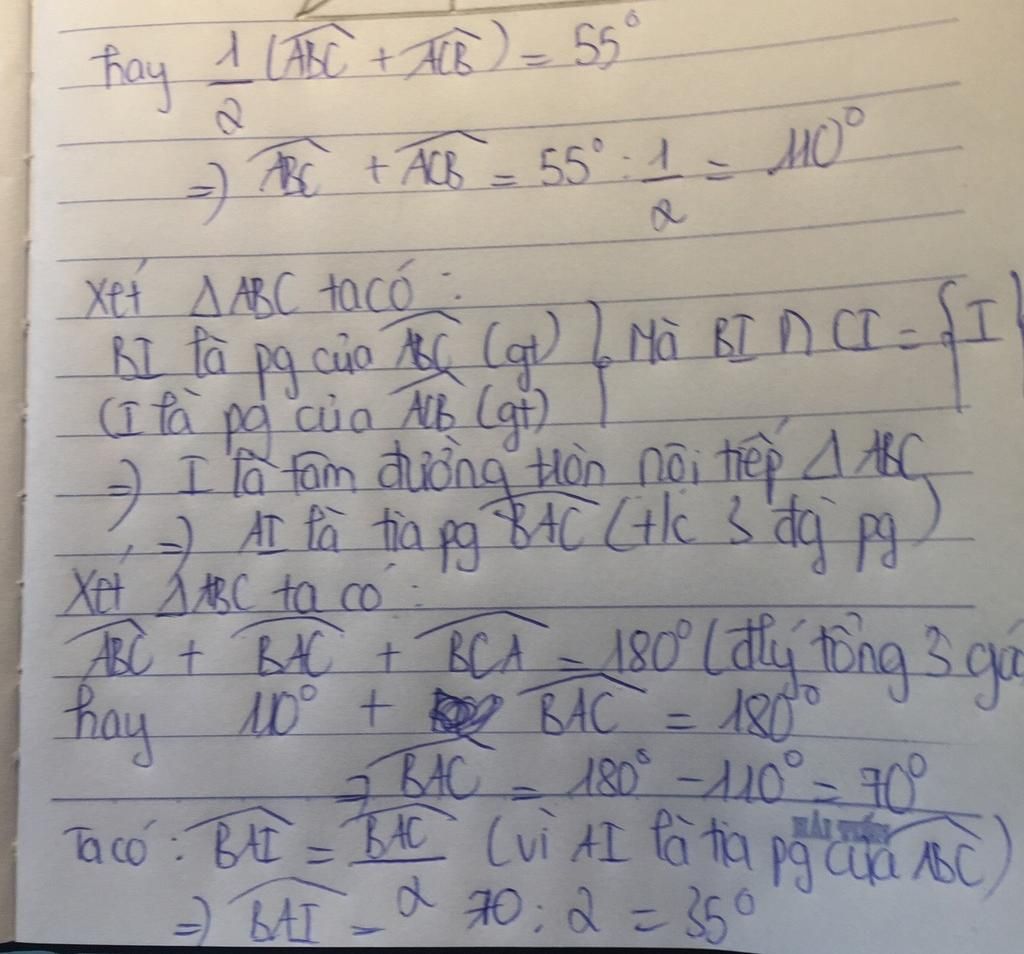 hay 1/2 (ABC + ACB) = 55°
=> ABC + ACB = 55° : 1/2 = 110°
Xét Δ ABC ta có :
BI là pg của ABC (gt) } Mà BI ∩ CI = {I}
CI là pg của ACB (gt)
=> I là tâm đường tròn nội tiếp Δ ABC
=> AI là tia pg BAC (t/c 3 đg pg)
Xét Δ ABC ta có :
ABC + BAC + BCA = 180° (đlý tổng 3 gó
hay 110° + BAC = 180°
=> BAC = 180° - 110° = 70°
Ta có : BAI = BAC/2 (vì AI là tia pg của ABC)
=> BAI = 70 : 2 = 35°